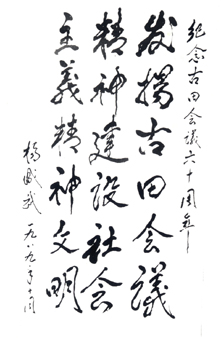 纪念古田会議六十周年
发揚古田会議
精神建設社会
主義精神文明
楊成武
一九八九年十月